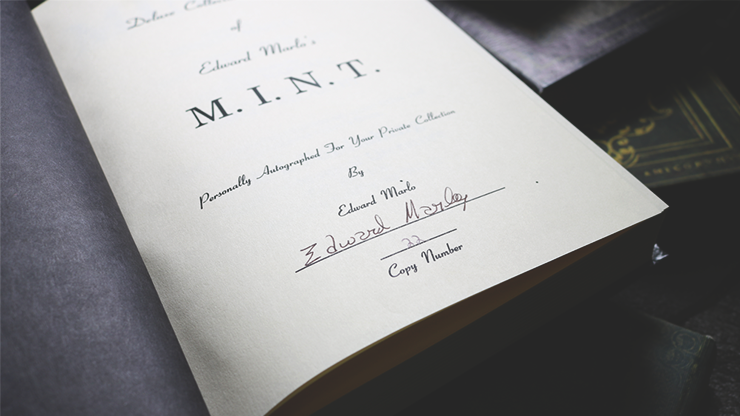 Deluxe Collection
of
Edward Marlo's
M.I.N.T.
Personally Autographed For Your Private Collection
By
Edward Marlo
Edward Marlo
22
Copy Number